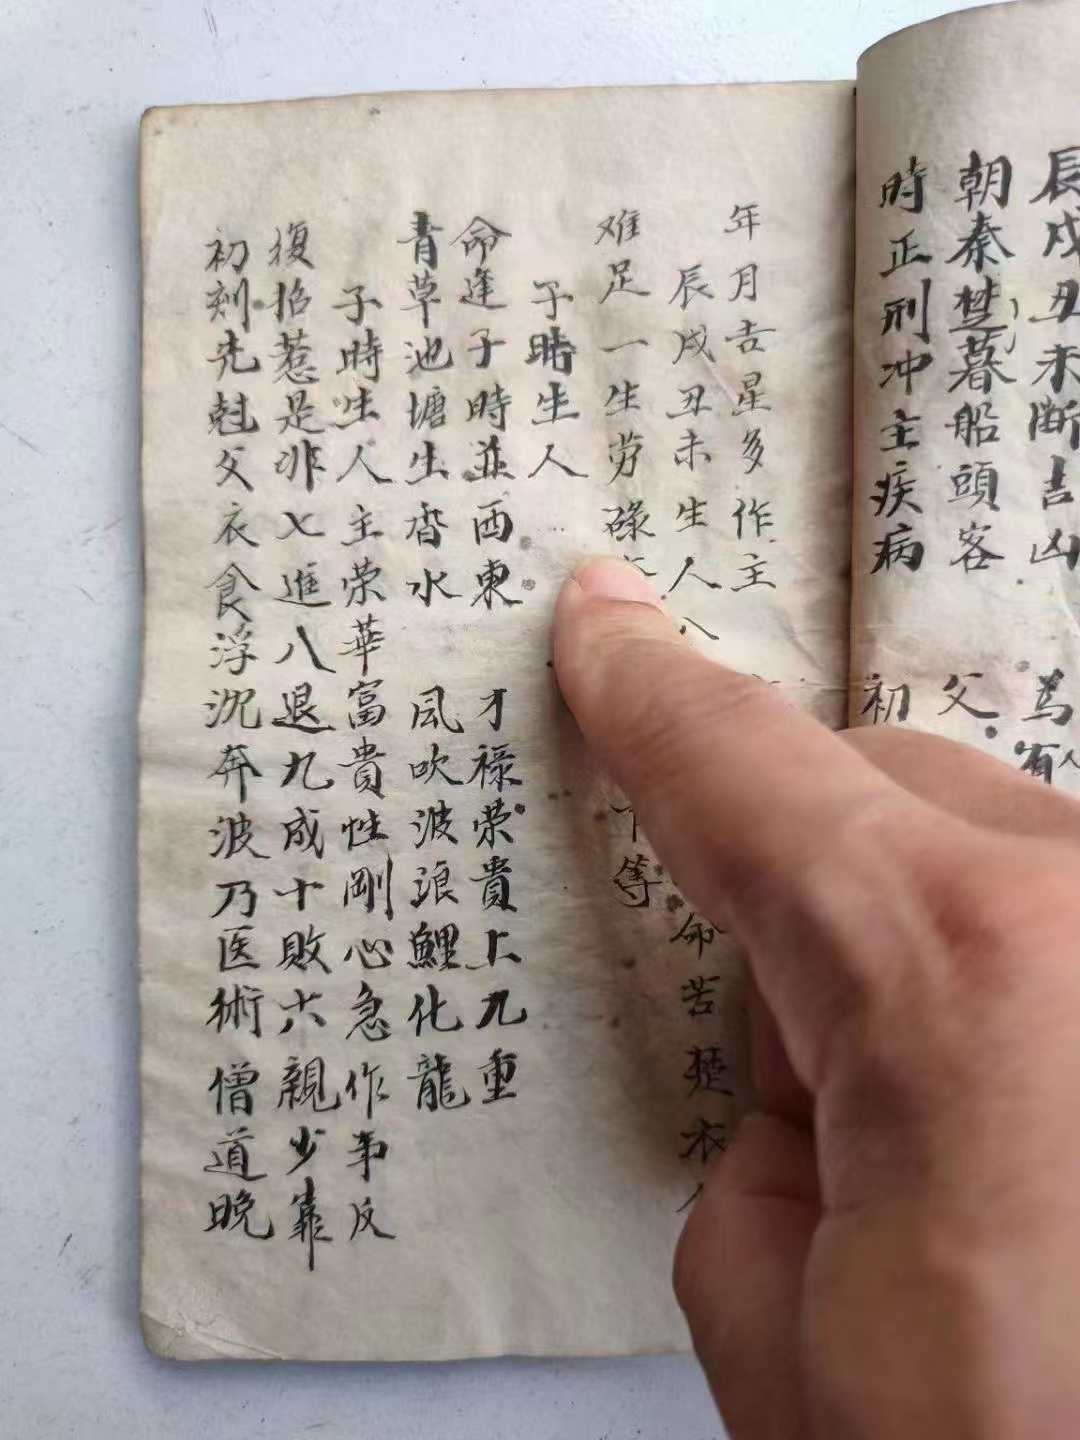 辰戌丑未断吉凶 為有人
朝秦楚暮船頭客 父
時正刑冲主疾病 初
年月吉星多作主
辰戌丑未生人八 命苦楚衣
难足一生劳碌 下等
子時生人
命逢子時並西東 才禄荣貴上九重
青草池塘生香水 风吹波浪鯉化龍
子時生人主荣華富貴性剛心急作事反
復招惹是非七進八退九成十敗六親少靠
初刻先尅父衣食浮沉奔波乃医術僧道晚